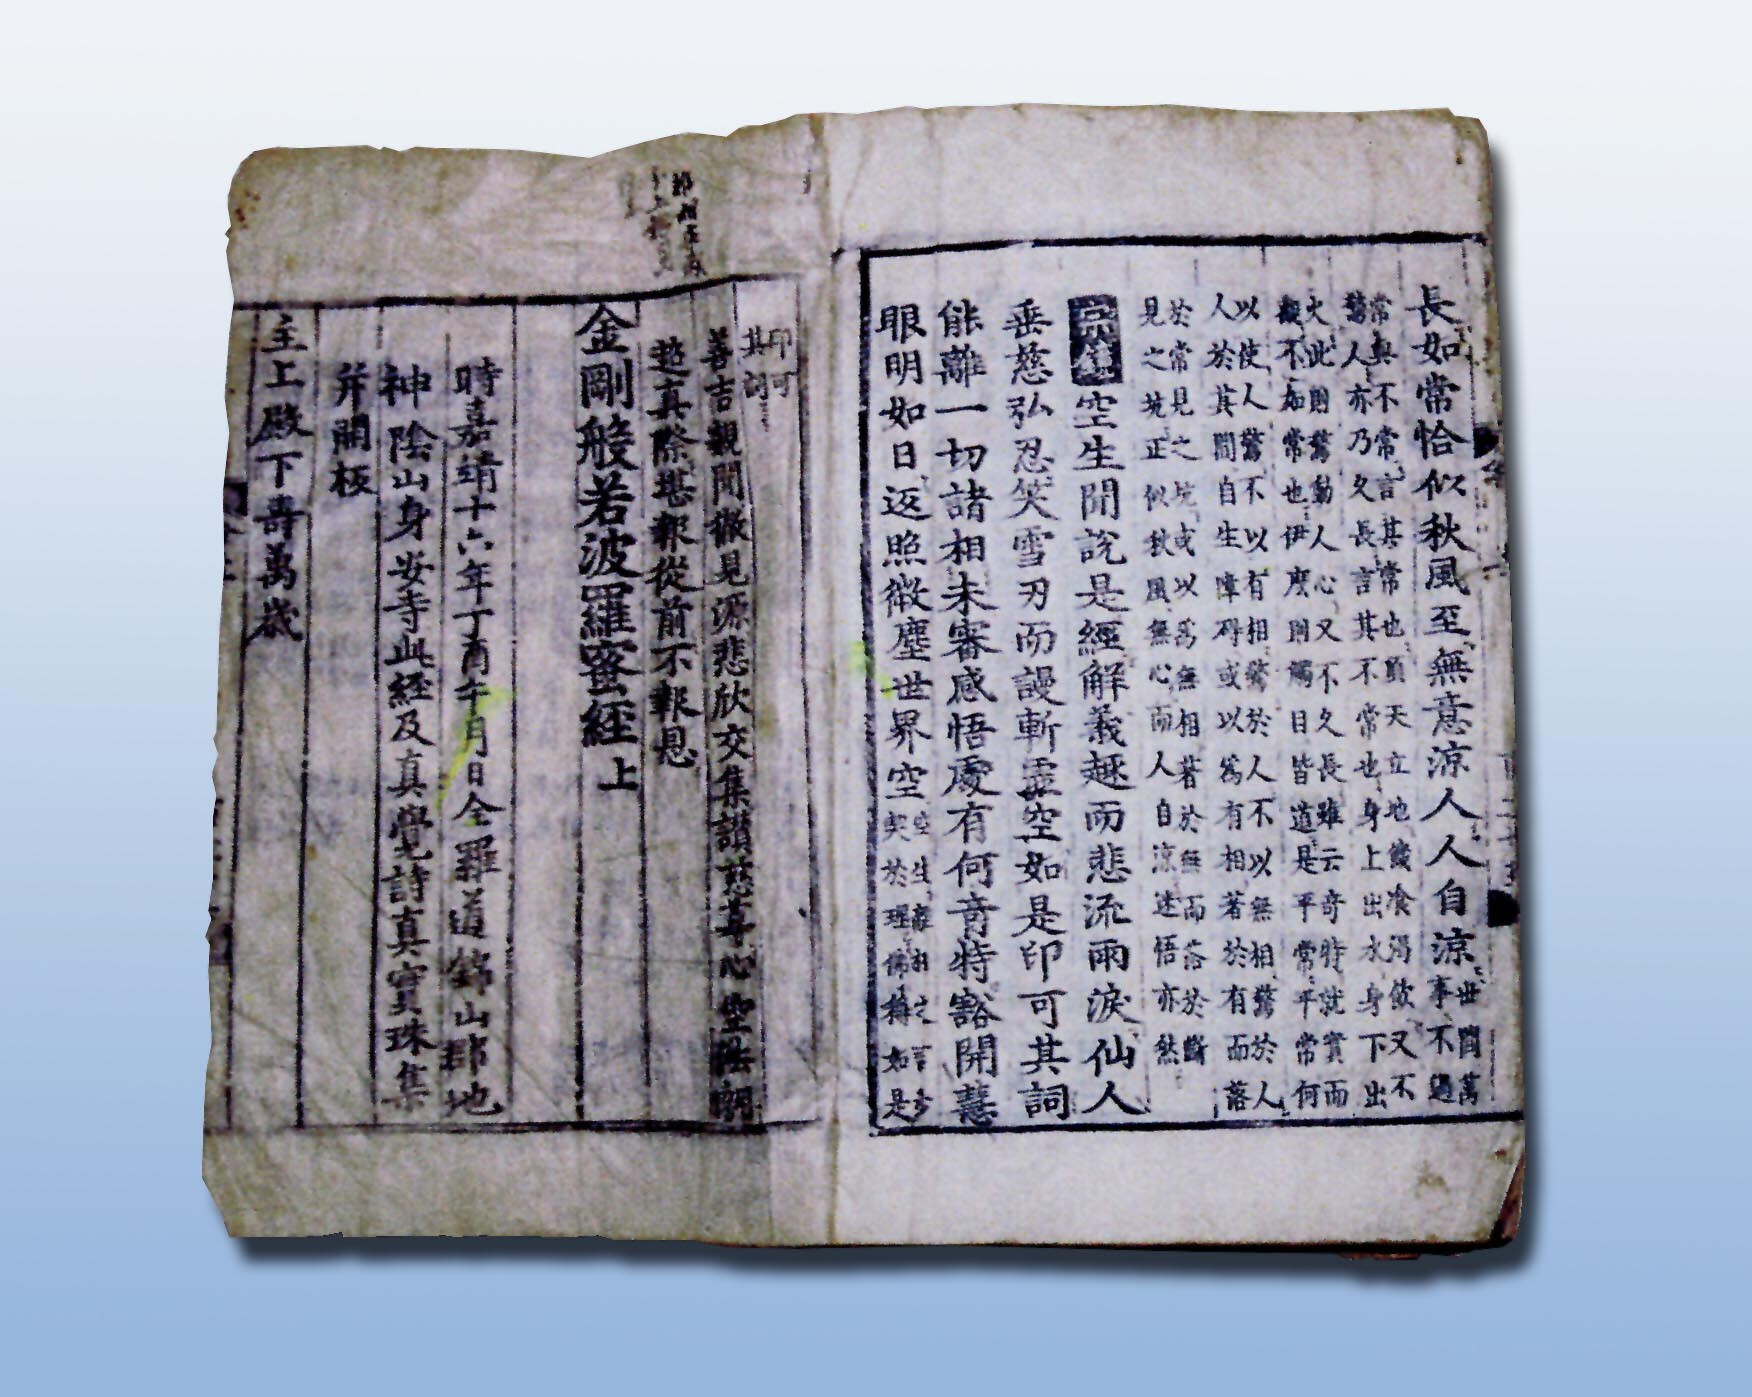 長如常恰似秋風至無意涼人人自涼世間萬
事不過
常與不常言其常也頂天立地飢飡渴飮又不
驚人亦乃久長言其不常也身上出水身下出
火此則驚動人心又不久長雖云奇特就實而
觀不如常也伊麽則觸目皆道是平常平常何
以使人驚不以有相驚於人不以無相驚於人
人於其間自生障碍或以爲有相著於有而落
於常見之坑或以爲無相著於無而落於斷
見之坑正似秋風無心而人自涼迷悟亦然
空生聞說是經解義趣而悲流雨淚仙人
垂慈弘忍笑雪刃而謾斬虛空如是印可其詞
能離一切諸相未審感悟處有何奇特豁開慧
眼明如日返照微塵世界空
空生離相之言
契於理佛稱如是
印可
其詞
善吉親聞徹見源悲欣交集讃慈尊心空法朗
超真際堪報從前不報恩
金剛般若波羅蜜經 上
時嘉靖十六年丁酉 月日全羅道錦山郡地
神陰山身安寺此經及真覺詩真實珠集
幷開板
主上殿下壽萬歲